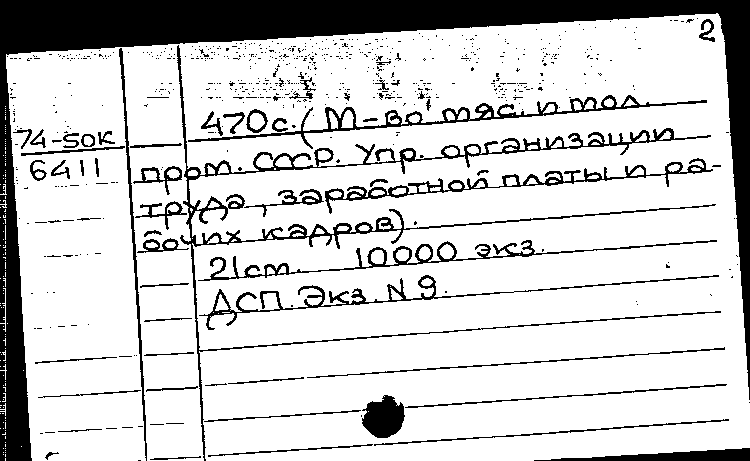 2
470с. (М-во мяс. и мол.
74-50к
6411
пром. СССР. Упр. организации
труда, заработной платы и ра-
бочих кадров).
21см. 10000 экз.
ДСП. Экз. N 9.